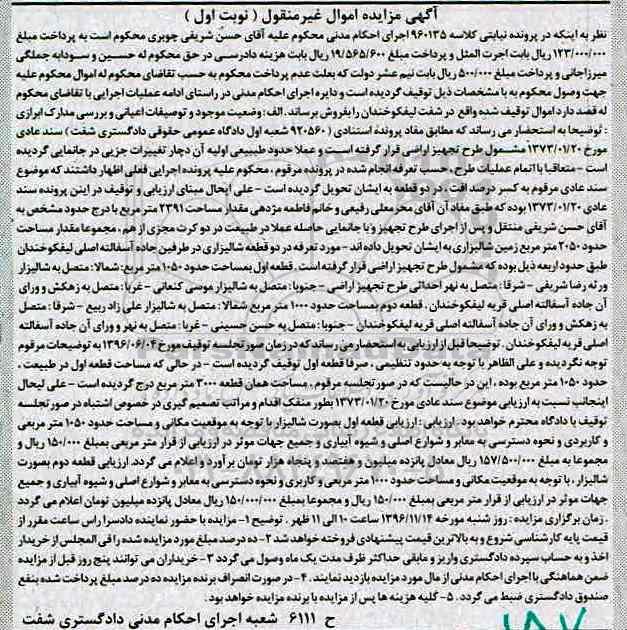 آگهی مزایده اموال غیرمنقول ( نوبت اول )
نظر به اینکه در پرونده نیابتی کلاسه ۹۶۰۱۳۵ اجرای احکام مدنی محکوم علیه آقای حسن شریفی چوبری محکوم است به پرداخت مبلغ
۱۲۳/۰۰۰/۰۰۰ ریال بابت اجرت المثل و پرداخت مبلغ ۱۹/۵۶۵/۶۰۰ ریال بابت هزینه دادرسی در حق محکوم له حسین و سودابه جملگی
میرزاجانی و پرداخت مبلغ ۵۰۰/۰۰۰ ریال بابت نیم عشر دولت که بعلت عدم پرداخت محکوم به حسب تقاضای محکوم له اموال محکوم علیه
جهت وصول محکوم به با مشخصات ذیل توقیف گردیده است و دایره اجرای احکام مدنی در راستای ادامه عملیات اجرایی با تقاضای محکوم
له قصد دارد اموال توقیف شده واقع در شفت لیفکوخندان را بفروش برساند. الف: وضعیت موجود و توصیفات اعیانی و بررسی مدارک ابرازی
: توضیحا به استحضار می رساند که مطابق مفاد پرونده استنادی ( ۹۲۰۵۶۰ شعبه اول دادگاه عمومی حقوقی دادگستری شفت ) سند عادی
مورخ ۱۳۷۳/۰۱/۲۰ مشمول طرح تجهیز اراضی قرار گرفته است و عملا حدود طبیعی اولیه آن دچار تغییرات جزیی در جانمایی گردیده
است - متعاقبا با اتمام عملیات طرح، حسب تعرفه انجام شده در پرونده مرقوم، محکوم علیه پرونده اجرایی فعلی اظهار داشتند که موضوع
سند عادی مرقوم به کسر درصد افت، در دو قطعه به ایشان تحویل گردیده است - علی ایحال مبنای ارزیابی و توقیف در این پرونده سند
عادی ۱۳۷۳/۰۱/۲۰ بوده که طبق مفاد آن آقای محرمعلی رفیعی و خانم فاطمه مژدهی مقدار مساحت ۲۳۹۱ متر مربع با درج حدود مشخص به
آقای حسن شریفی منتقل و پس از اجرای طرح تجهیز و با جانمایی حاصله عملا در طبیعت در دو کرت مجزی از هم، مجموعا مقدار مساحت
حدود ۲۰۵۰ متر مربع زمین شالیزاری به ایشان تحویل داده اند - مورد تعرفه در دو قطعه شالیزاری در طرفین جاده آسفالته اصلی لیفکوخندان
طبق حدود اربعه ذیل بوده که مشمول طرح تجهیز اراضی قرار گرفته است. قطعه اول بمساحت حدود ۱۰۵۰ متر مربع: شمالا: متصل به شالیزار
ورثه رضا شریفی - شرقا: متصل به نهر احداثی طرح تجهیز اراضی - جنوبا: متصل به شالیزار موسی کنعانی - غربا: متصل به زهکش و ورای
آن جاده آسفالته اصلی قریه لیفکوخندان. قطعه دوم بمساحت حدود ۱۰۰۰ متر مربع شمالا: متصل به شالیزار علی زاد ربیع - شرقا: متصل
به زهکش و ورای آن جاده آسفالته اصلی قریه لیفکوخندان - جنوبا: متصل به حسن حسینی - غربا: متصل به نهر و ورای آن جاده آسفالته
اصلی قریه لیفکوخندان. توضیحا قبل از ارزیابی به استحضار می رساند که در زمان صورتجلسه توقیف مورخ ۱۳۹۶/۰۶/۰۴ به توضیحات مرقوم
توجه نگردیده و علی الظاهر با توجه به حدود تنظیمی، صرفا قطعه اول توقیف گردیده است - در حالی که مساحت قطعه اول در طبیعت،
حدود ۱۰۵۰ متر مربع بوده، این در حالیست که در صورتجلسه مرقوم، مساحت همان قطعه ۳۰۰۰ متر مربع درج گردیده است - علی لیحال
اینجانب نسبت به ارزیابی موضوع سند عادی مورخ ۱۳۷۳/۰۱/۲۰ بطور منفک اقدام و مراتب تصمیم گیری در خصوص اشتباه در صورتجلسه
توقیف با دادگاه محترم خواهد بود. ارزیابی: ارزیابی قطعه اول بصورت شالیزار با توجه به موقعیت مکانی و مساحت حدود ۱۰۵۰ متر مربعی
و کاربردی و نحوه دسترسی به معابر و شوارع اصلی و شیوه آبیاری و جمیع جهات موثر در ارزیابی از قرار متر مربعی بمبلغ ۱۵۰/۰۰۰ ریال و
مجموعا به مبلغ ۱۵۷/۵۰۰/۰۰۰ ریال معادل پانزده میلیون و هفتصد و پنجاه هزار تومان برآورد و اعلام می گردد. ارزیابی قطعه دوم بصورت
شالیزار، با توجه به موقعیت مکانی و مساحت حدود ۱۰۰۰ متر مربعی و کاربری و نحوه دسترسی به معابر و شوارع اصلی و شیوه آبیاری و جمیع
جهات موثر در ارزیابی از قرار متر مربعی بمبلغ ۱۵۰/۰۰۰ ریال و مجموعا بمبلغ ۱۵۰/۰۰۰/۰۰۰ ریال معادل پانزده میلیون تومان اعلام می گردد
. زمان برگزاری مزایده: روز شنبه مورخه ۱۳۹۶/۱۱/۱۴ ساعت ۱۰ الی ۱۱ ظهر. توضیح ۱- مزایده با حضور نماینده دادسرا راس ساعت مقرر از
قیمت پایه کارشناسی شروع و به بالاترین قیمت پیشنهادی فروخته خواهد شد ۲- ده درصد مبلغ مورد مزایده شده را فی المجلس از خریدار
اخذ و به حساب سپرده دادگستری واریز و مابقی حداکثر ظرف مدت یک ماه وصول می گردد ۳- خریداران می توانند پنج روز قبل از مزایده
ضمن هماهنگی با اجرای احکام مدنی از مال مورد مزایده بازدید نمایند. ۴- در صورت انصراف برنده مزایده ده درصد مبلغ پرداخت شده بنفع
صندوق دادگستری ضبط می گردد. ۵- کلیه هزینه ها پس از مزایده با برنده مزایده خواهد بود.
ح ۶۱۱۱ شعبه اجرای احکام مدنی دادگستری شفت
۱۸۷